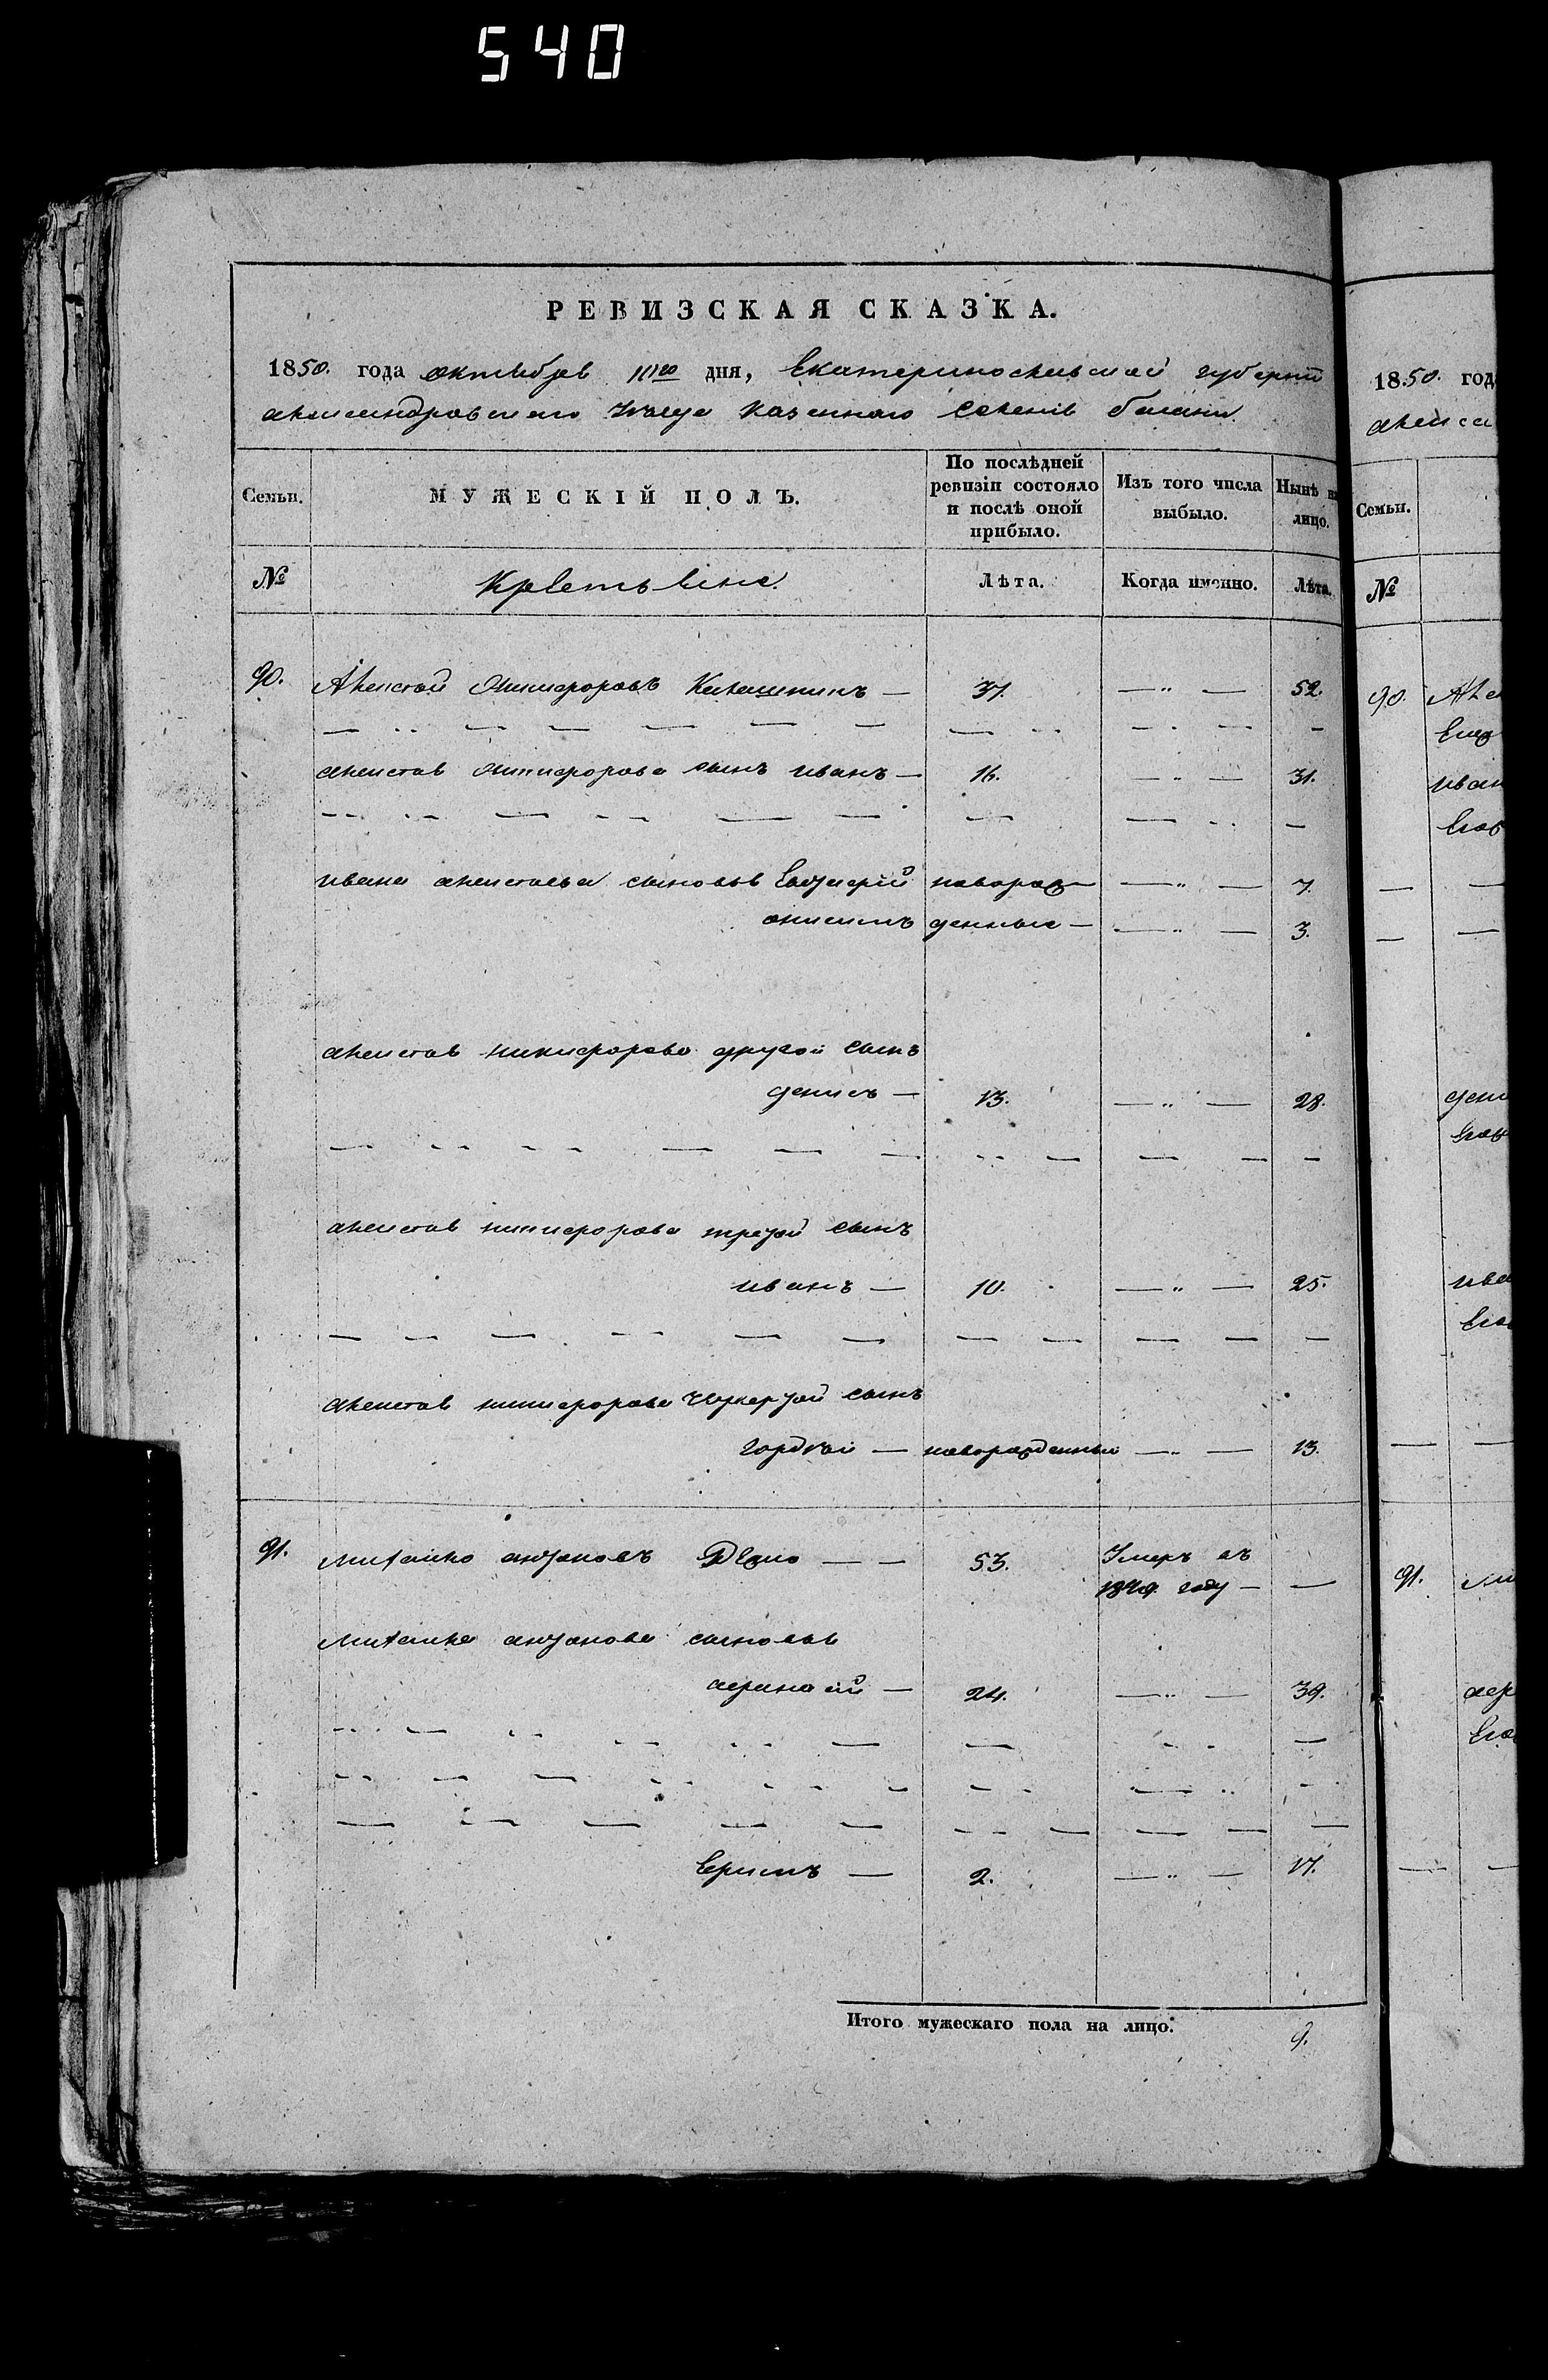 540
РЕВИЗСКАЯ СКАЗКА.
1850. года октября дня, Екатеринославской губернии
александровского уезда казенного селенія
Семьи. МУЖЕСКІЙ ПОЛЪ. По послѣдней ревизіи состояло и послѣ оной прибыло. Изъ того числа выбыло. Нынѣ на лицо.
№ Крестьяне. Лѣта. Когда именно. Лѣта.
90. Алексей Никифоровъ — 37. — " — 52.
алексея Никифорова сынъ иванъ — 16. — " — 31.
ивана алексеева сыновья новорож — " — 7.
онисимъ денные — — " — 3.
алексея никифорова другой сынъ
денисъ — 13. — " — 28.
алексея никифорова третій сынъ
иванъ — 10. — " — 25.
алексея никифорова четвертой сынъ
гордѣй — новорожденный — " — 13.
91. михайло антоновъ — — 53. Умеръ въ
1849 году — —
михайла антонова сыновья
афанасий — 24. — " — 39.
Ефимъ — 2. — " — 17.
Итого мужескаго пола на лицо. 9.
18.50. год
Семьи.
№
90.
иван
91.